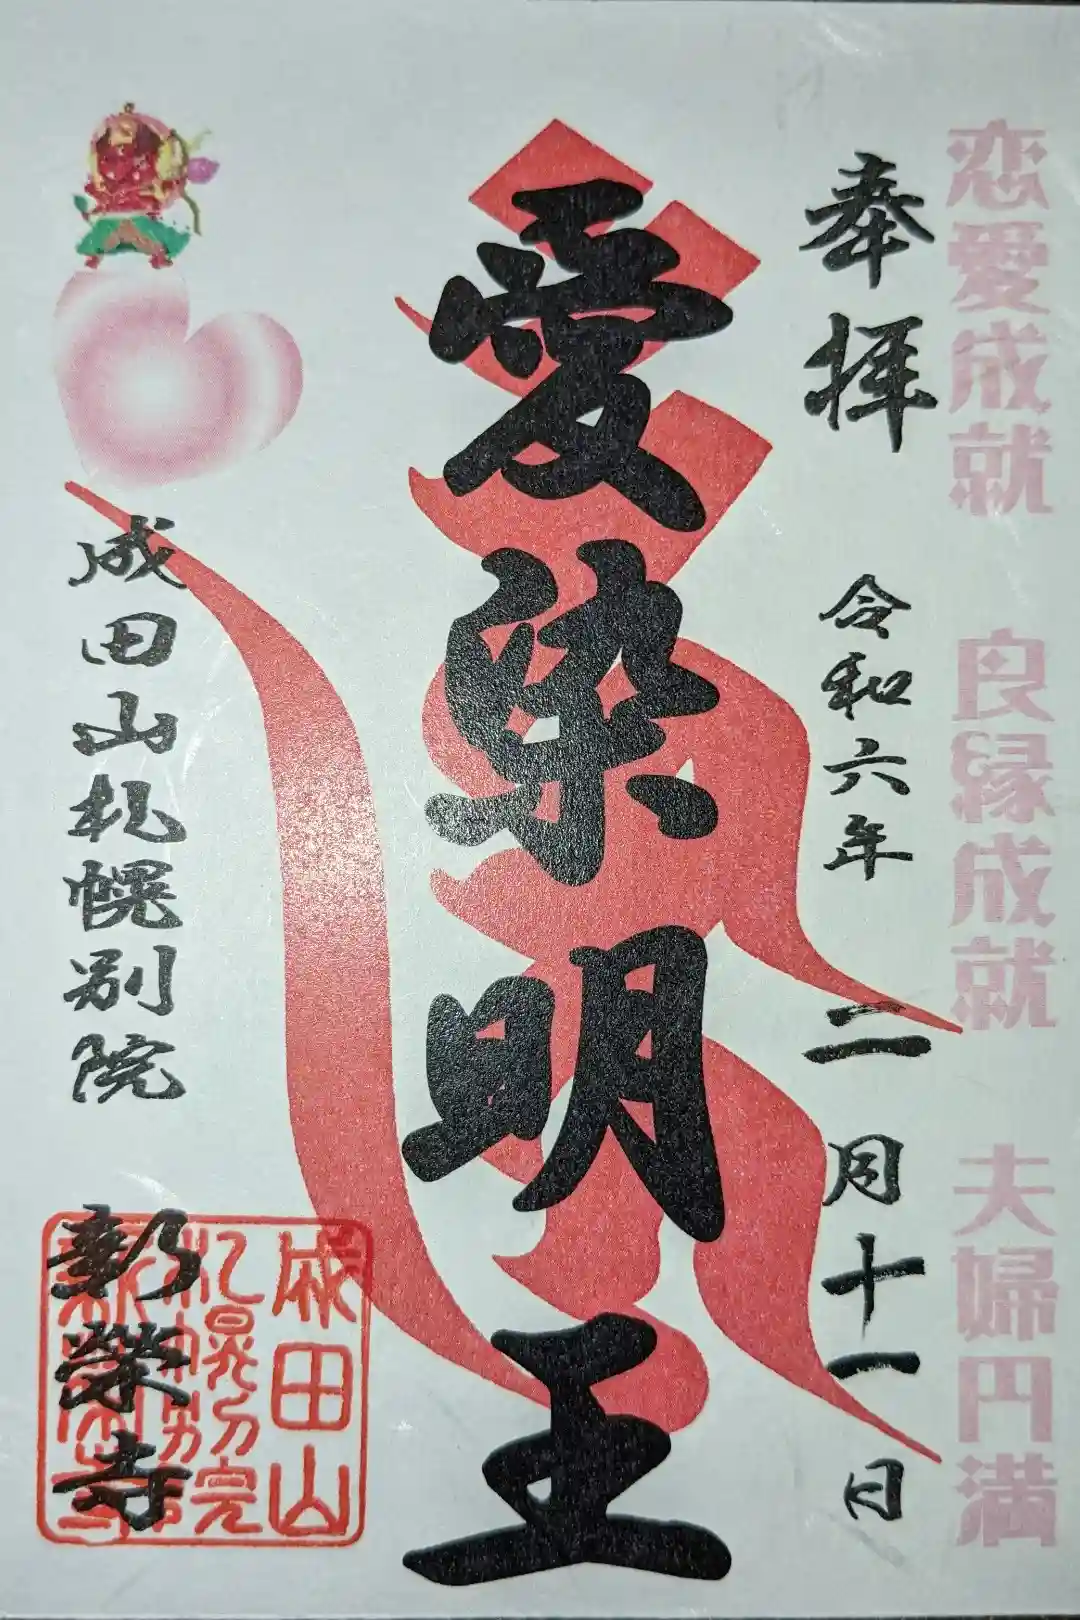 恋愛成就 良縁成就 夫婦円満
奉拝 令和六年 二月十一日
愛染明王
成田山札幌別院 新榮寺
成田山
札幌別院
新榮寺